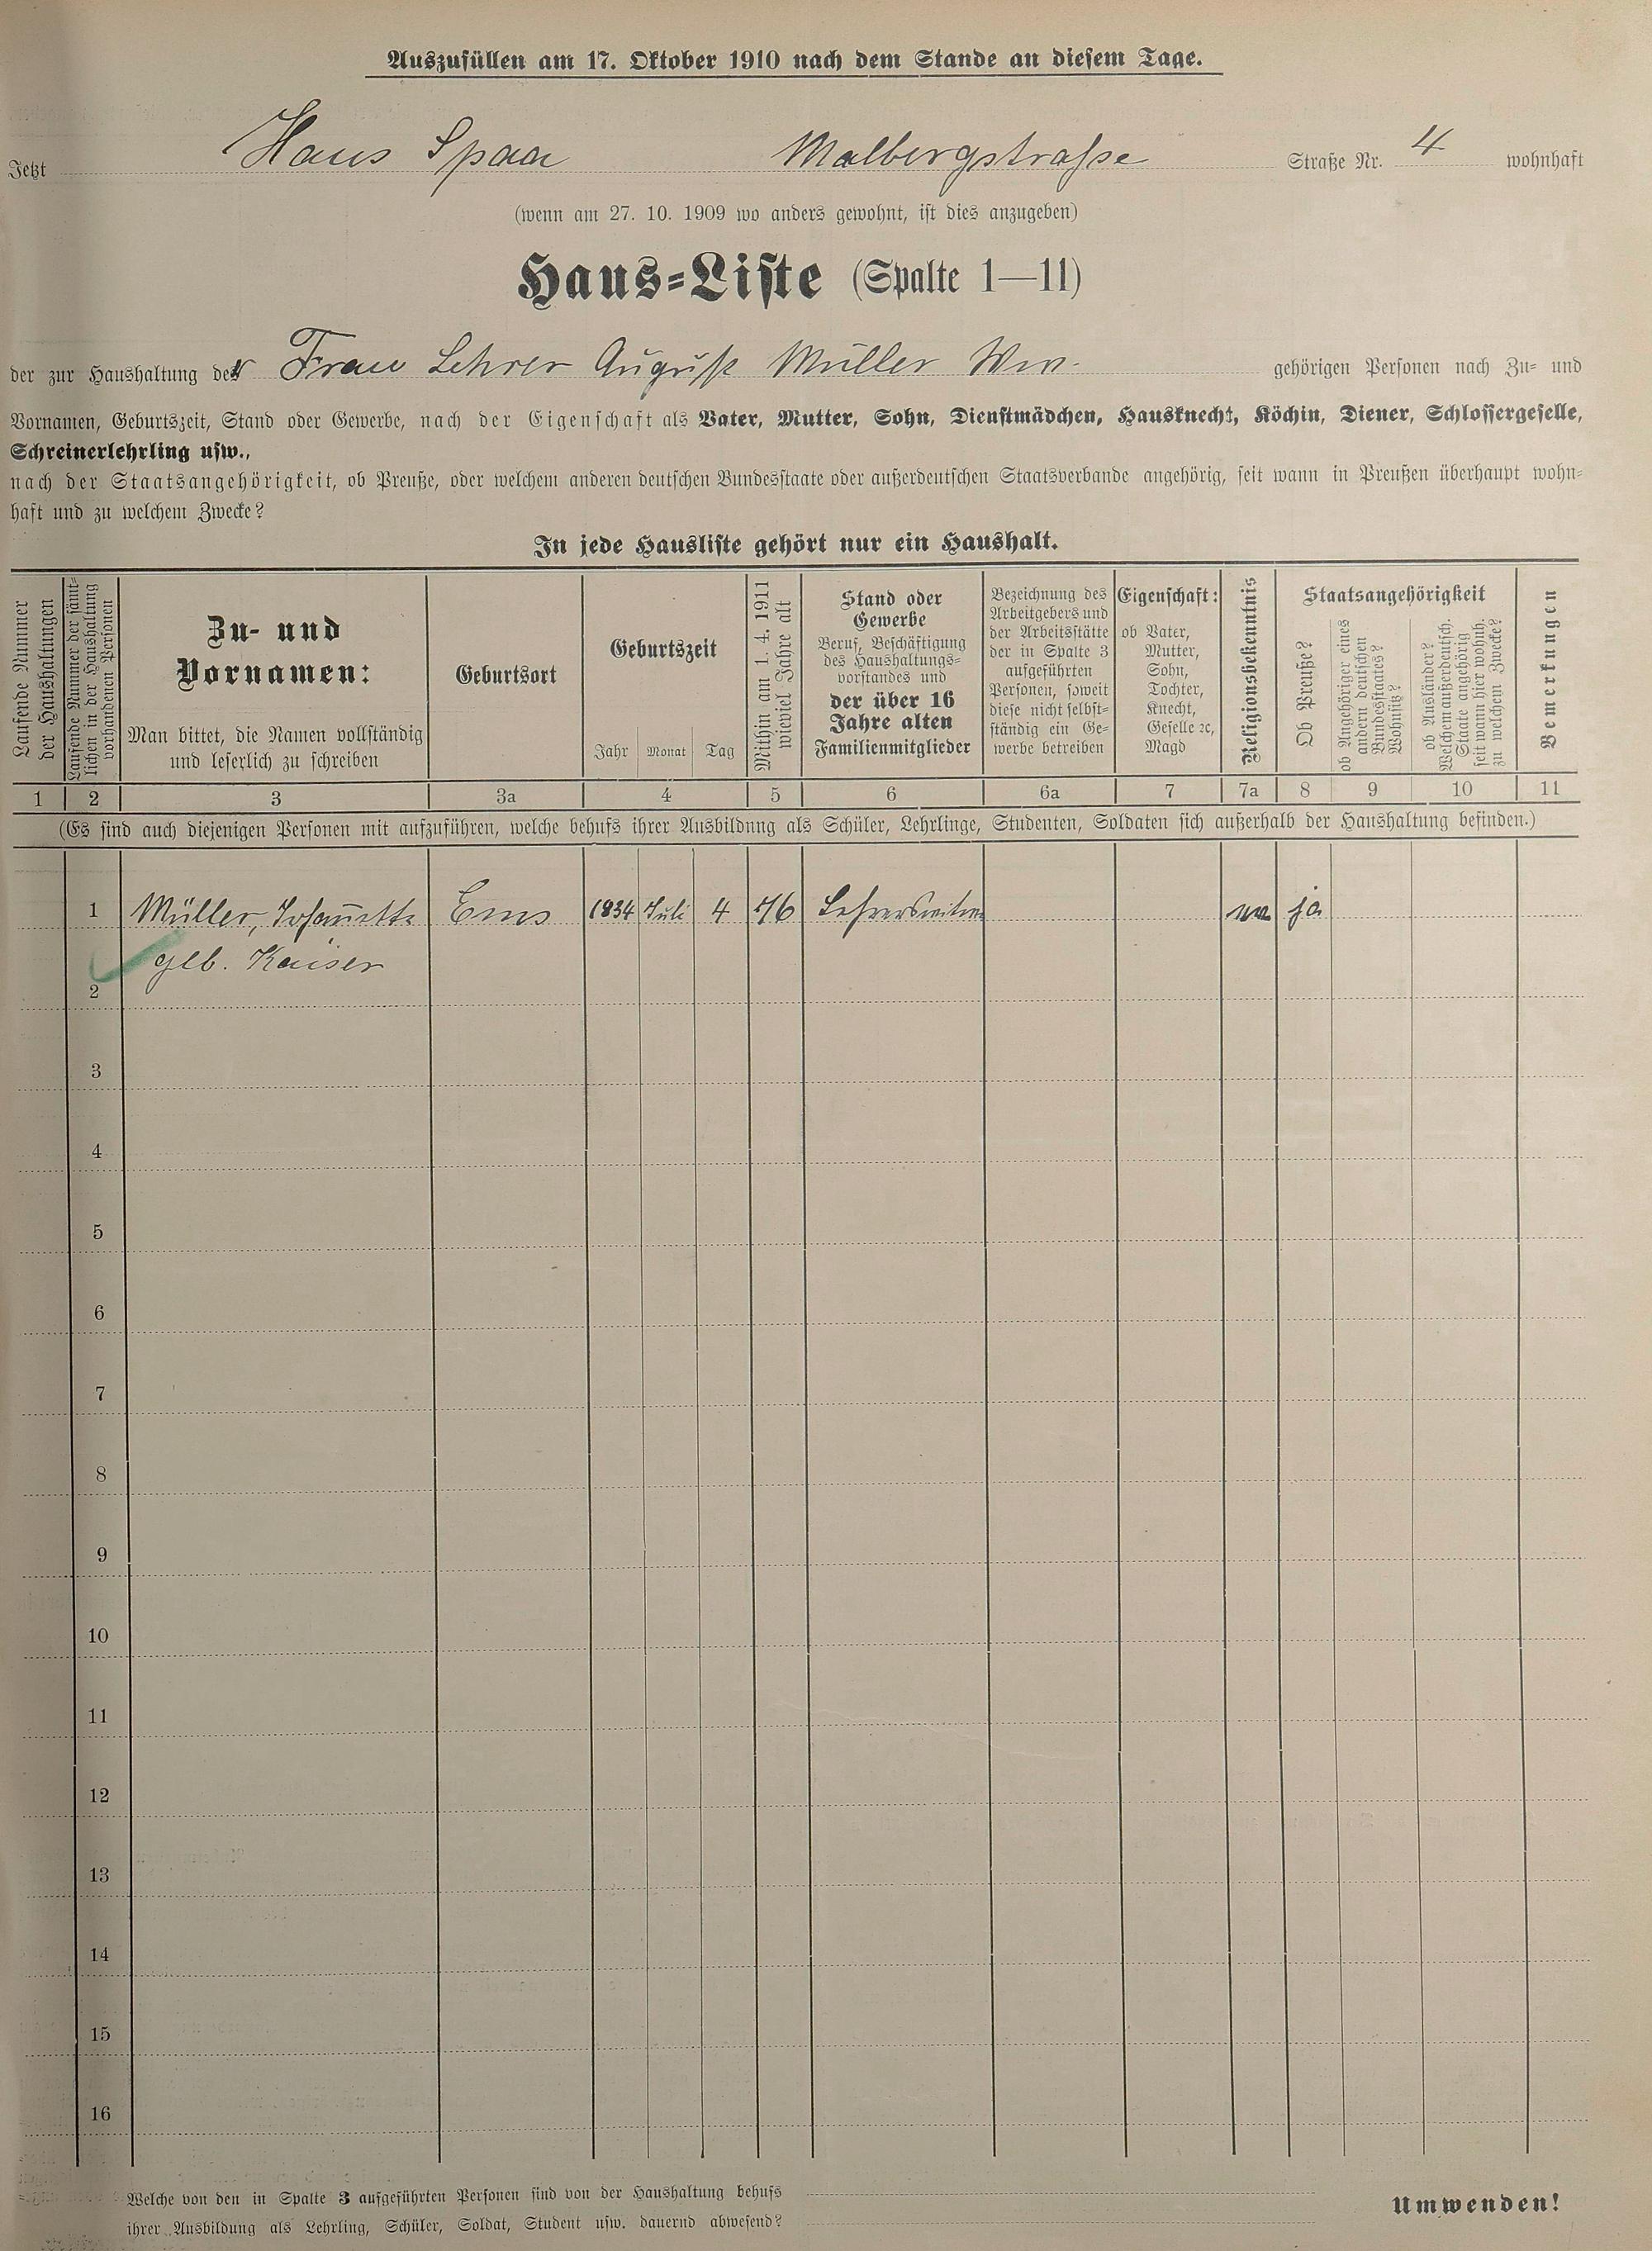 Auszufüllen am 17. Oktober 1910 nach dem Stande an diesem Tage.
Jetzt Haus Spaar Malbergstraße Straße Nr. 4 wohnhaft
(wenn am 27. 10. 1909 wo anders gewohnt, ist dies anzugeben)
Haus-Liste (Spalte 1—11)
der zur Haushaltung der Frau Lehrer August Müller Ww. gehörigen Personen nach Zu- und
Vornamen, Geburtszeit, Stand oder Gewerbe, nach der Eigenschaft als Vater, Mutter, Sohn, Dienstmädchen, Hausknecht, Köchin, Diener, Schlossergeselle,
Schreinerlehrling usw.,
nach der Staatsangehörigkeit, ob Preuße, oder welchem anderen deutschen Bundesstaate oder außerdeutschen Staatsverbande angehörig, seit wann in Preußen überhaupt wohn-
haft und zu welchem Zwecke?
In jede Hausliste gehört nur ein Haushalt.
Laufende Nummer
der Haushaltungen
Laufende Nummer der sämt-
lichen in der Haushaltung
vorhandenen Personen
Zu- und
Vornamen:
Man bittet, die Namen vollständig
und leserlich zu schreiben
Geburtsort
Geburtszeit
Jahr Monat Tag
Mithin am 1. 4. 1911
wieviel Jahre alt
Stand oder
Gewerbe
Beruf, Beschäftigung
des Haushaltungs-
vorstandes und
der über 16
Jahre alten
Familienmitglieder
Bezeichnung des
Arbeitgebers und
der Arbeitsstätte
der in Spalte 3
aufgeführten
Personen, soweit
diese nicht selbst-
ständig ein Ge-
werbe betreiben
Eigenschaft:
ob Vater,
Mutter,
Sohn,
Tochter,
Knecht,
Geselle ꝛc,
Magd
Religionsbekenntnis
Staatsangehörigkeit
Ob Preuße?
ob Angehöriger eines
andern deutschen
Bundesstaates?
Wohnsitz?
ob Ausländer?
Welchem außerdeutsch.
Staate angehörig
seit wann hier wohnh.
zu welchem Zwecke?
Bemerkungen
1 2 3 3a 4 5 6 6a 7 7a 8 9 10 11
(Es sind auch diejenigen Personen mit aufzuführen, welche behufs ihrer Ausbildung als Schüler, Lehrlinge, Studenten, Soldaten sich außerhalb der Haushaltung befinden.)
1 Müller, Johannette Ems 1834 Juli 4 76 Lehrerswitwe ja
geb. Kaiser
2
3
4
5
6
7
8
9
10
11
12
13
14
15
16
Welche von den in Spalte 3 aufgeführten Personen sind von der Haushaltung behufs
ihrer Ausbildung als Lehrling, Schüler, Soldat, Student usw. dauernd abwesend?
Umwenden!